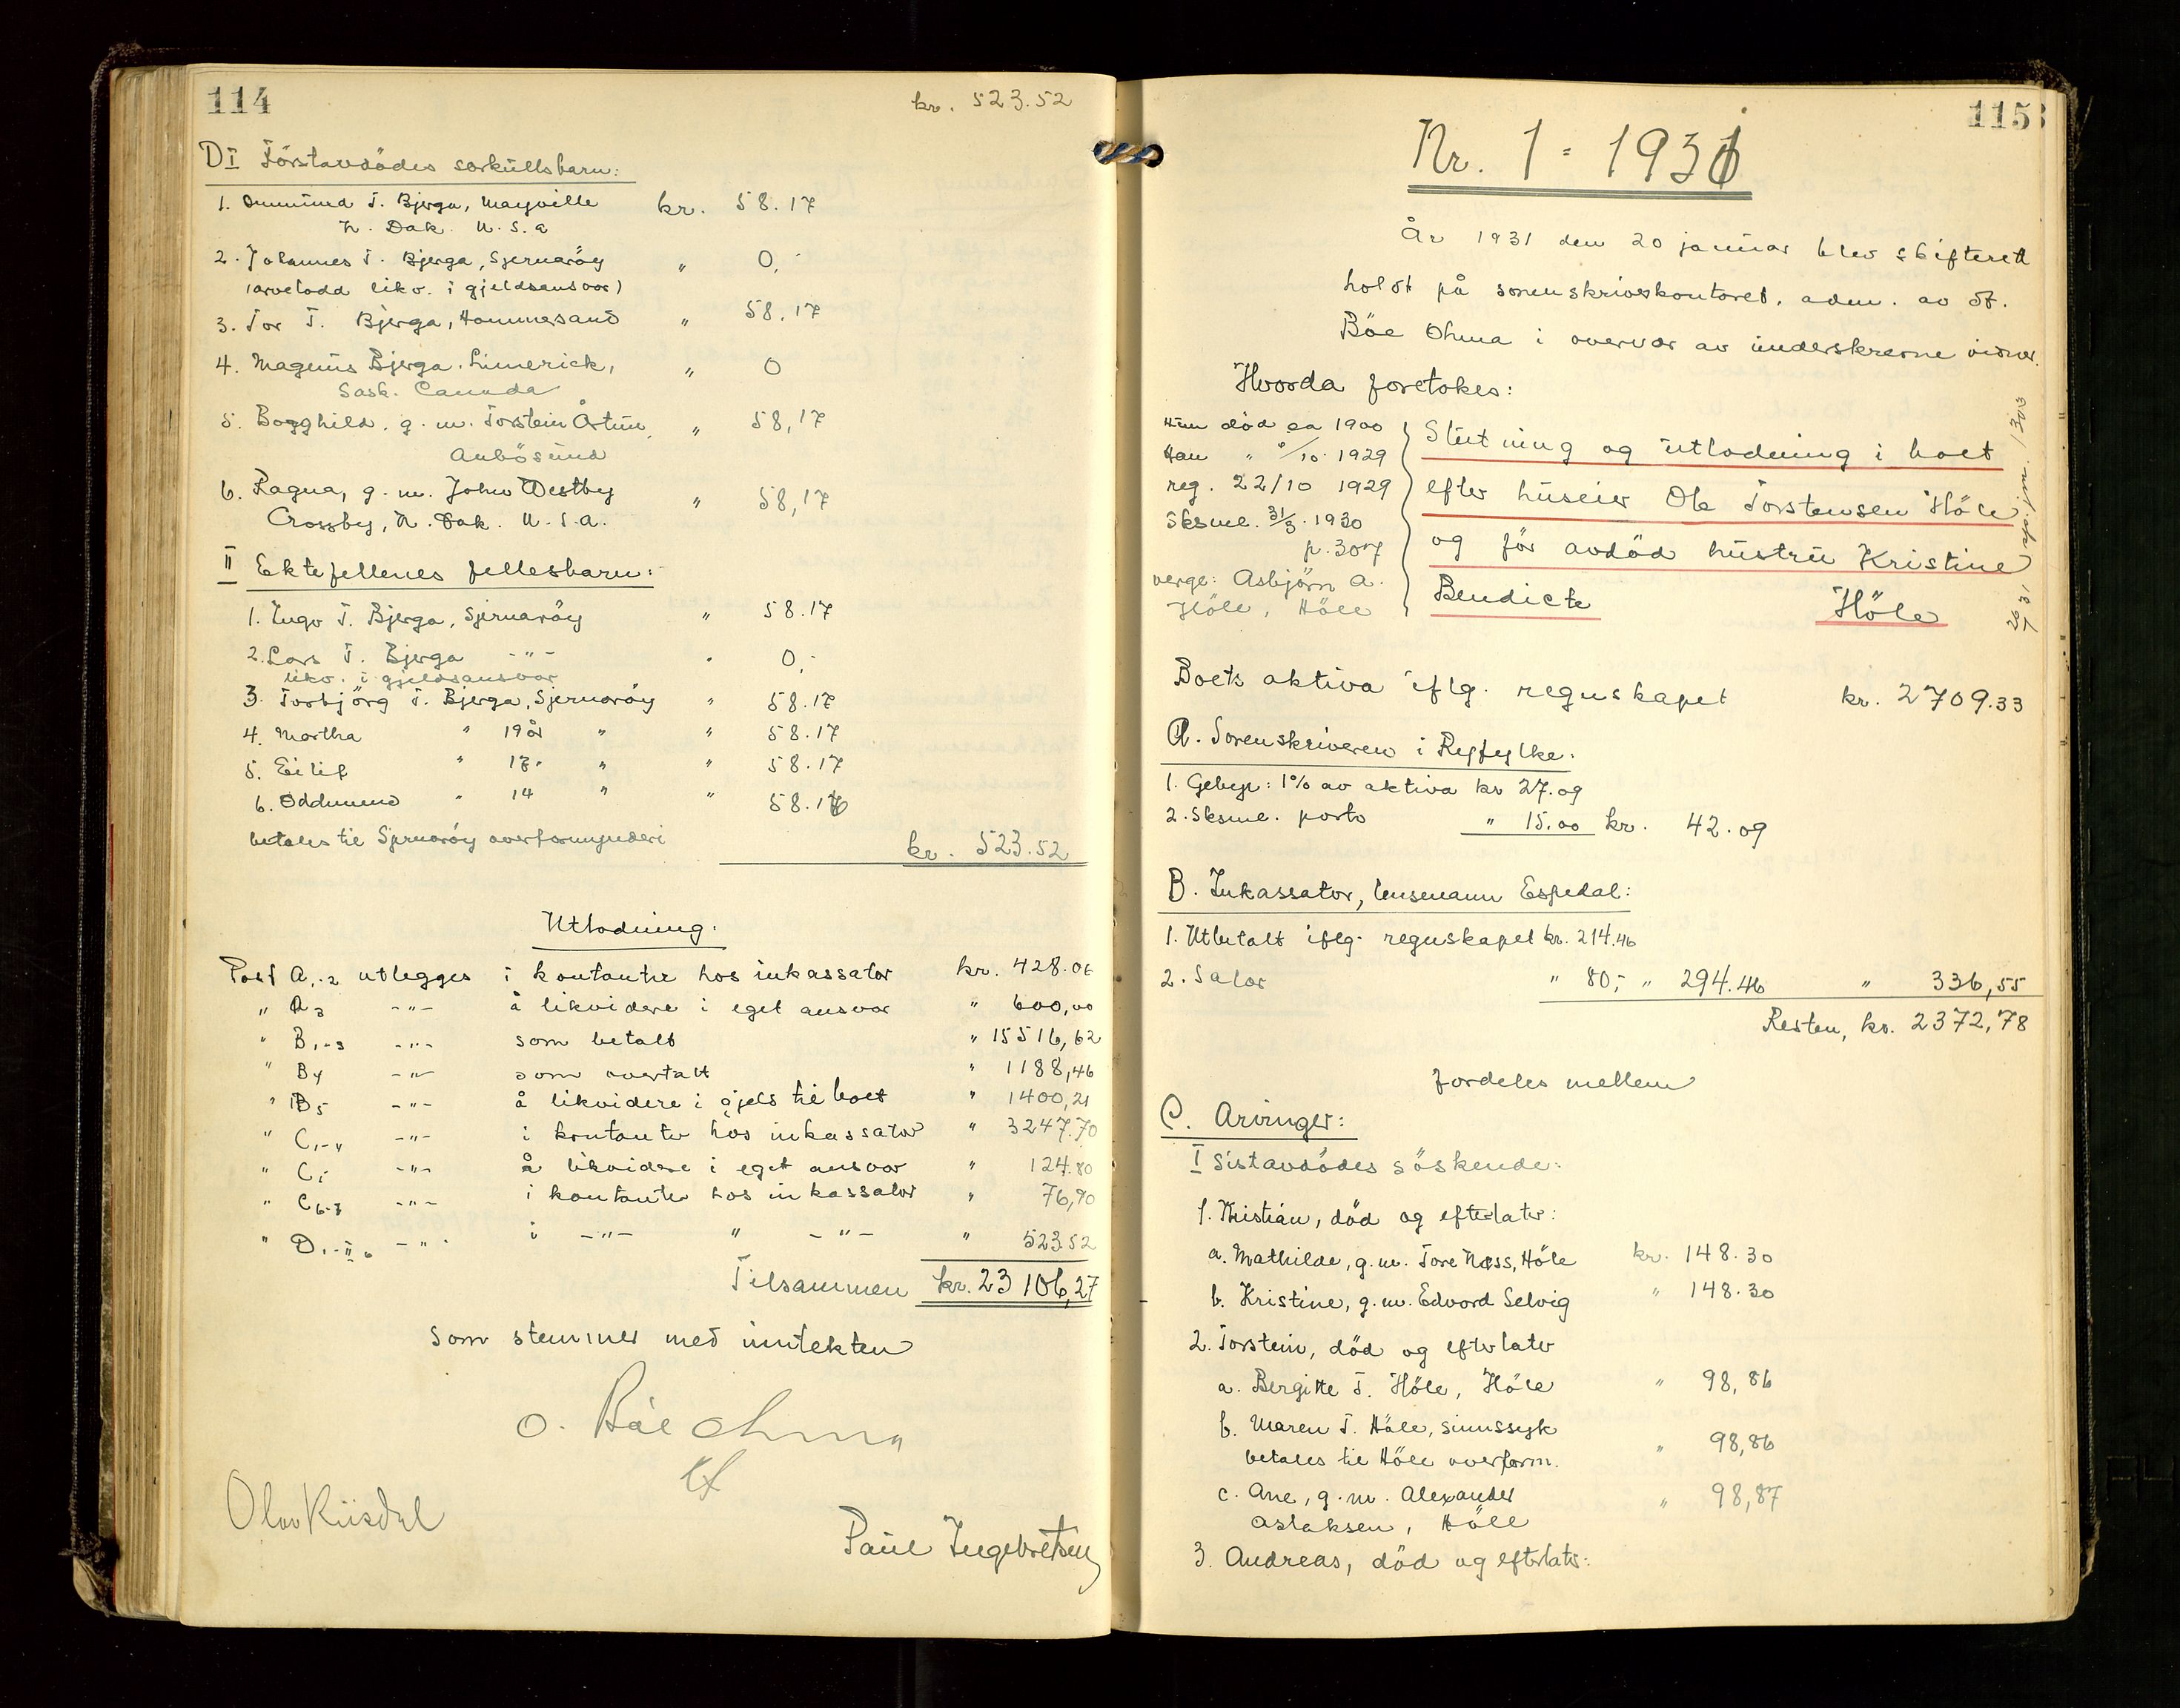 114
kr. 523.52
D I Förstavdödes särkullsbarn:
1. Ommund T. Bjerga, Mayville kr. 58.17
N. Dak. U.S.a
2. Johannes T. Bjerga, Sjernaröy " 0,-
(arvelodd likv. i gjeldsansvar)
3. Tor T. Bjerga, Hommersand " 58,17
4. Magnus Bjerga. Limerick, " 0
Sask. Canada
5. Bogghild. g. m. Torstein Årtun, " 58,17
Aubösund
6. Ragna, g. m. John Westby " 58,17
Crossby, N. Dak. U.S.a.
II Ektefellenes fellesbarn:
1. Ingv T. Bjerga, Sjernaröy " 58.17
2. Lars T. Bjerga -"- " 0,-
likv. i gjeldsansvar
3. Torbjörg T. Bjerga, Sjernaröy " 58.17
4. Martha " 19 år " " 58.17
5. Eilif " 17 " " " 58.17
6. Oddmund " 14 " " 58.16
betales til Sjernaröy overformynderi
kr. 523.52
Utlodning.
Post A1-2 utlegges i kontanter hos inkassator kr. 428.06
" A3 -"- å likvidere i eget ansvar " 600,00
" B1-3 -"- som betalt " 15516,62
" B4 -"- som overtatt " 1188,46
" B5 -"- å likvidere i gjeld til boet " 1400,21
" C1-4 -"- i kontanter hos inkassator " 3247.70
" C5 -"- å likvidere i eget ansvar " 124.80
" C6-7 -"- i kontanter hos inkassator " 76,90
" D1-II6 -"- i -"- " -"- " 523.52
Tilsammen kr. 23 106,27
som stemmer med inntekten
O. Böe Ohma
Olav Riisdal
Paul Ingebretsen
115
Nr. 1 - 1931
År 1931 den 20 januar blev skifterett
holdt på sorenskriverkontoret, adm. av df.
Böe Ohma i overvær av underskrevne vidner.
Hvorda foretokes:
Hun död ca 1900
Han " /10. 1929
reg. 22/10 1929
Sksml. 31/3. 1930
p. 307
verge: Asbjörn A.
Höle, Höle
Slutning og utlodning i boet
efter huseier Ole Torstensen Höle
og för avdöd hustru Kristine
Bendicte Höle
Boets aktiva iflg. regnskapet kr. 2709.33
A. Sorenskriveren i Ryfylke.
1. Gebyr: 1% av aktiva kr 27.09
2. Sksml. porto " 15.00 kr. 42.09
B. Inkassator, lensmann Espedal:
1. Utbetalt iflg. regnskapet kr. 214.46
2. Salær " 80,- " 294.46 " 336,55
Resten, kr. 2372,78
fordeles mellem
C. Arvinger:
I Sistavdödes söskende:
1. Kristian, död og efterlater:
a. Mathilde, g.m. Tore Næss, Höle kr. 148.30
b. Kristine, g.m. Edvard Selvig " 148.30
2. Torstein, död og efterlater
a. Bergitte T. Höle, Höle " 98,86
b. Maren T. Höle, sinnssyk
betales til Höle overform. " 98,86
c. Ane, g.m. Alexander " 98,87
Aslaksen, Höle
3. Andreas, död og efterlater: